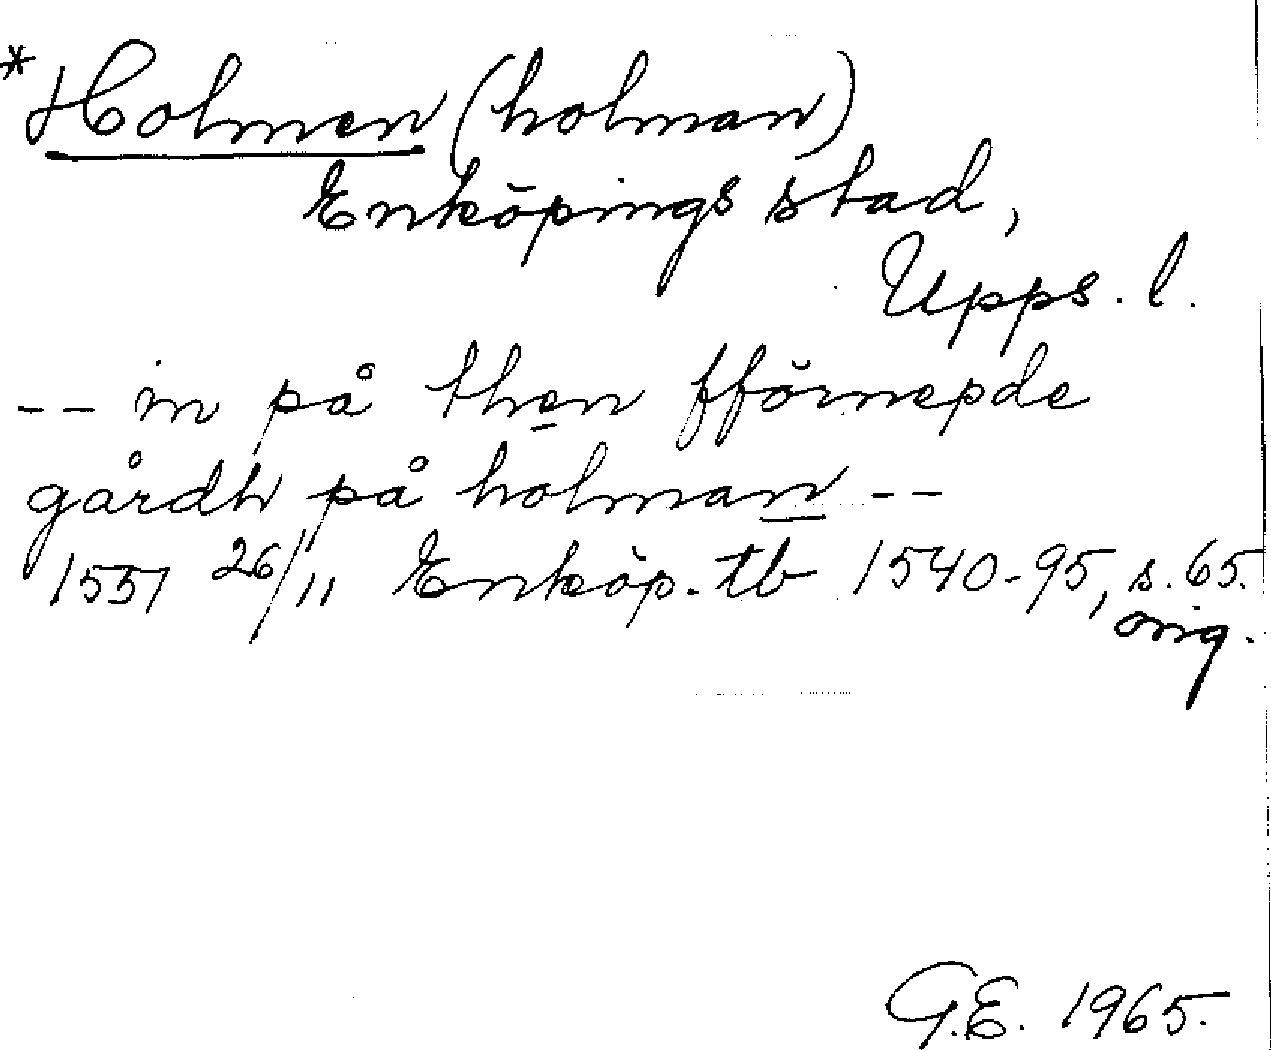 *Holmen (holman)
Enköpings stad,
Upps. l.
-- in på then fförnepde
gårdh på holman --
1551 26/11 Enköp. tb 1540-95, s. 65.
orig.
G.E. 1965.